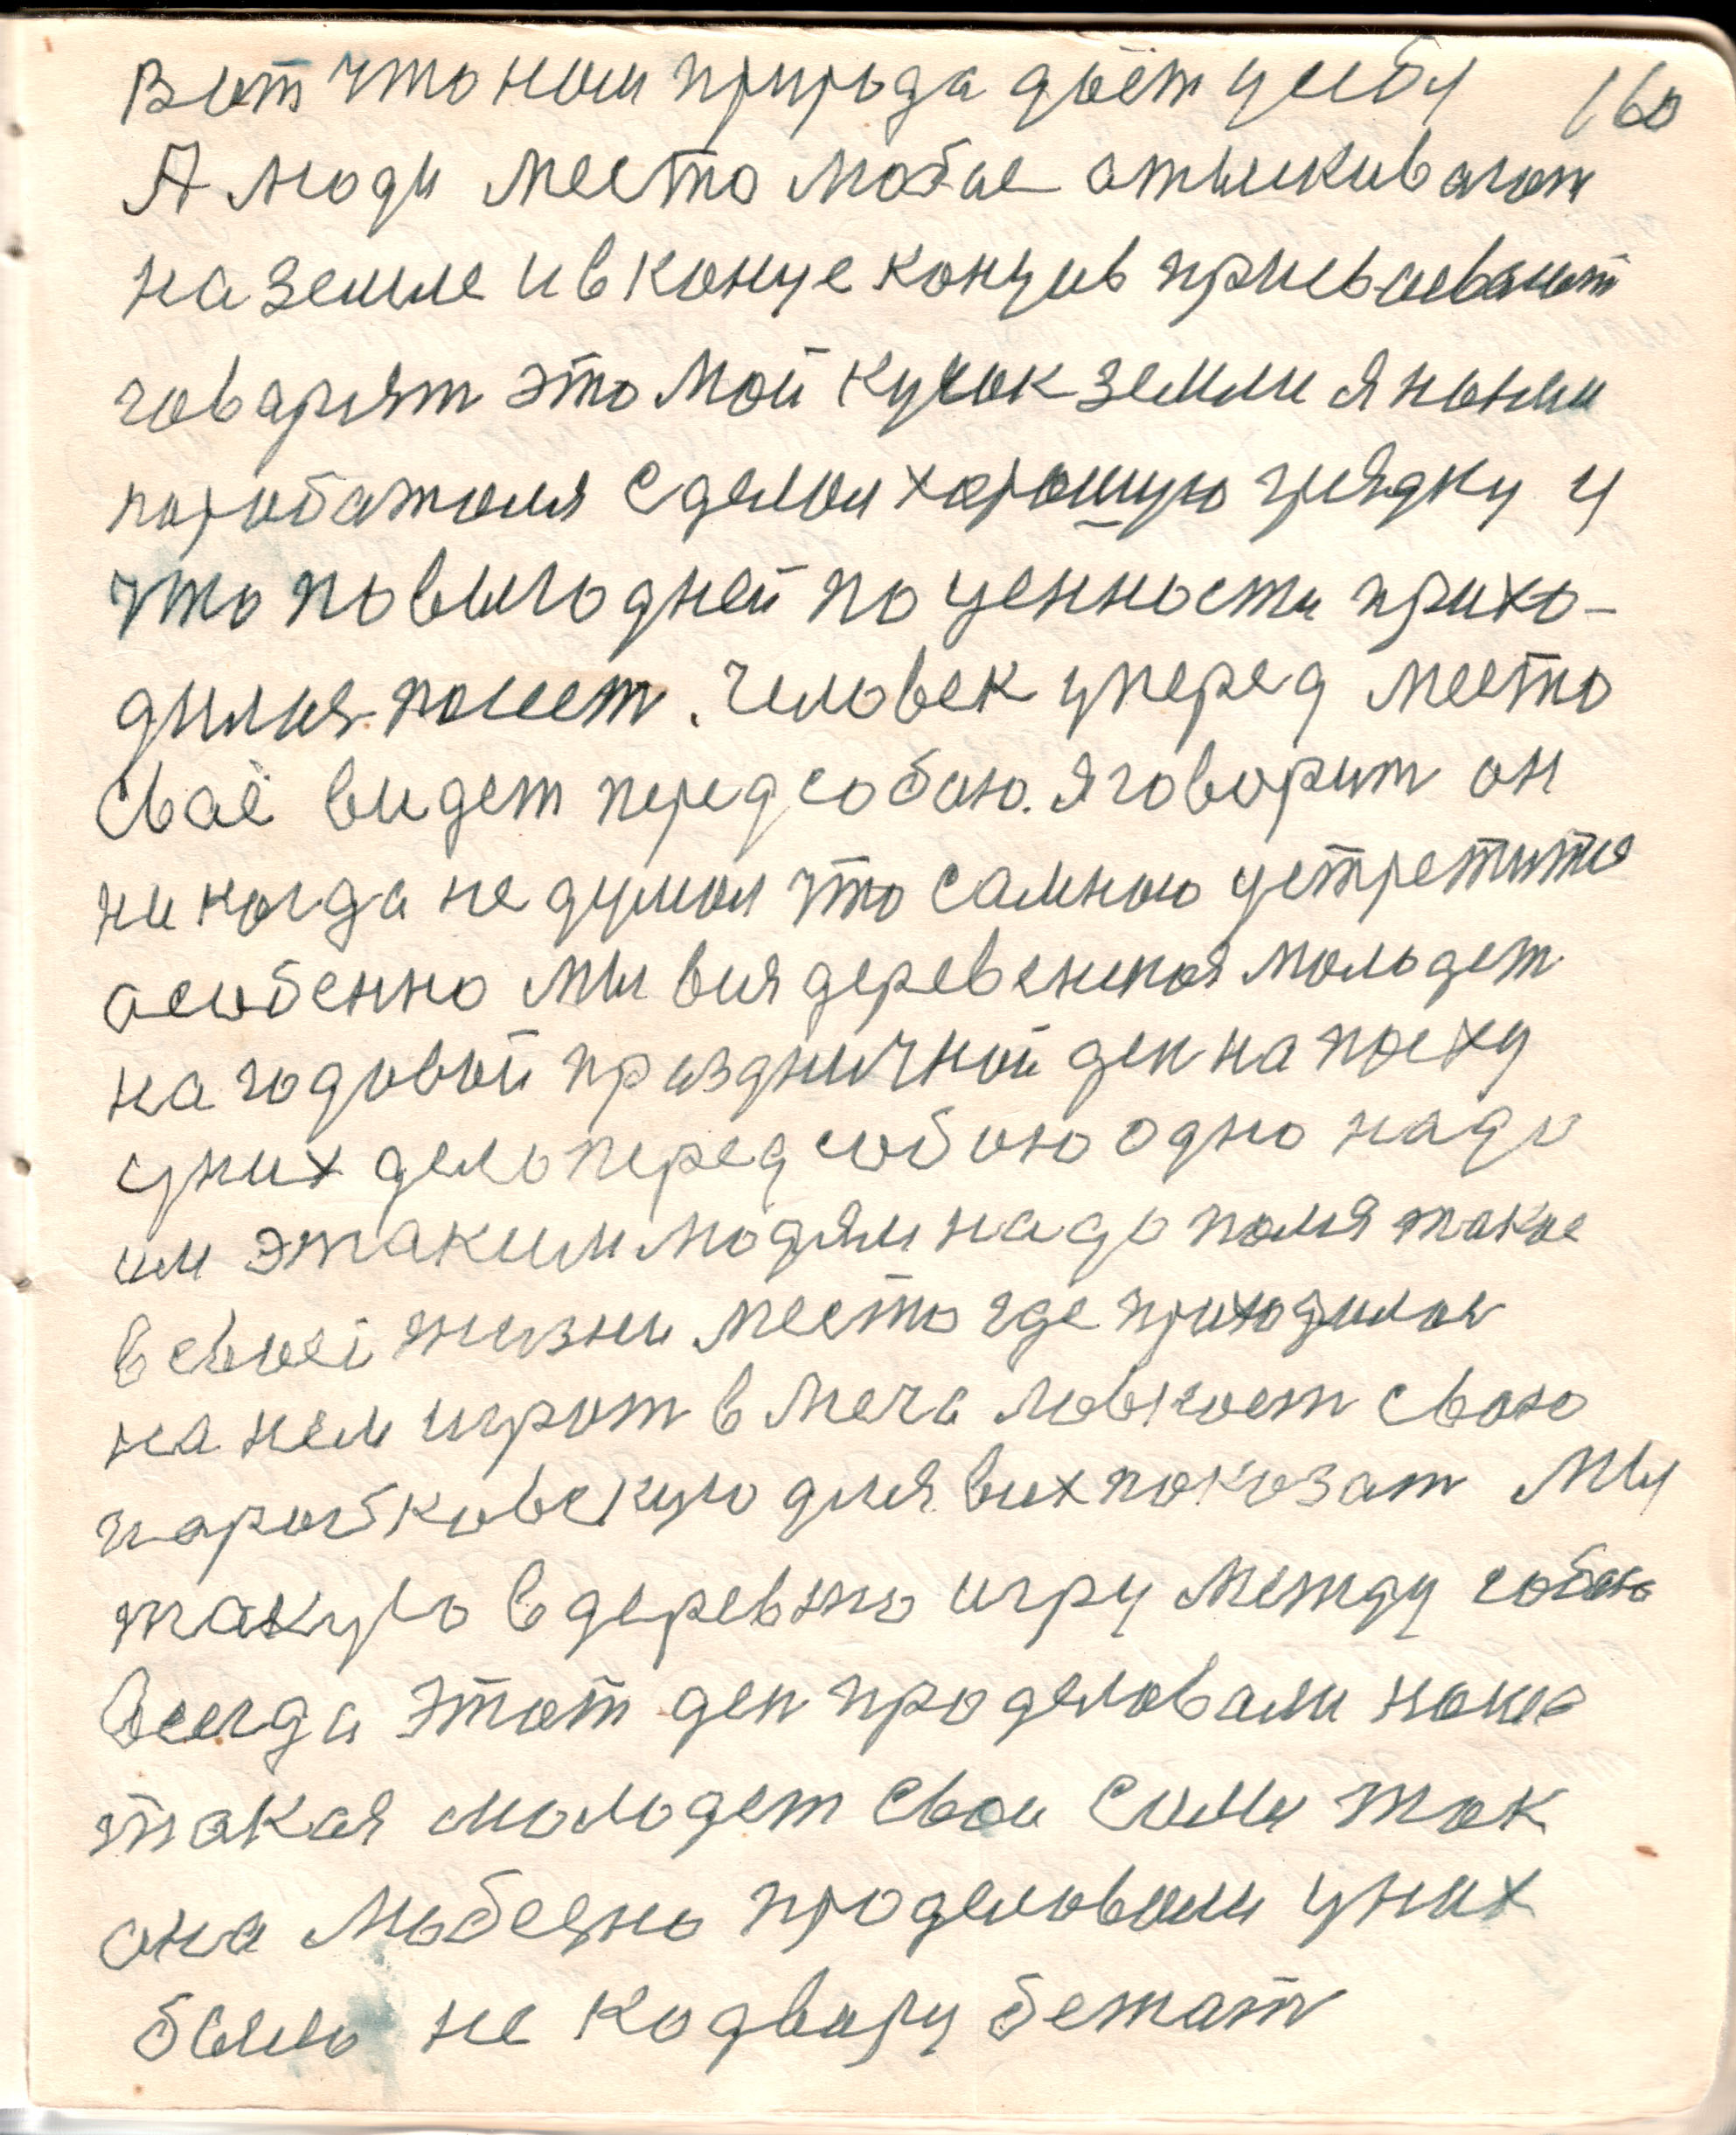 Вот что нам природа даёт у себя 160
А люди место любое отыскивают
на земле и в конце концов присваевают
говарят это мой кусок земли я на нем
поработаля сделал хорошую грядку и
что повыгодней по ценности прихо-
дилися посеет. Человек уперед место
сваё видет перед собою. я говорит он
никогда не думал что самною устретится
асобенно мы вся деревенская молодет
на годовой праздничной ден на пасху
у них дело перед собою одно надо
им этаким людям надо поля такое
в своеі жизни место где приходилос
на нем играт в мяча ловкост сваю
паробковскую для вих показат Мы
такую в деревню игру между собою
всегда этот ден проделовали наша
такая молодет свои силы так
она любезно проделовали у них
было не кодвору бежат